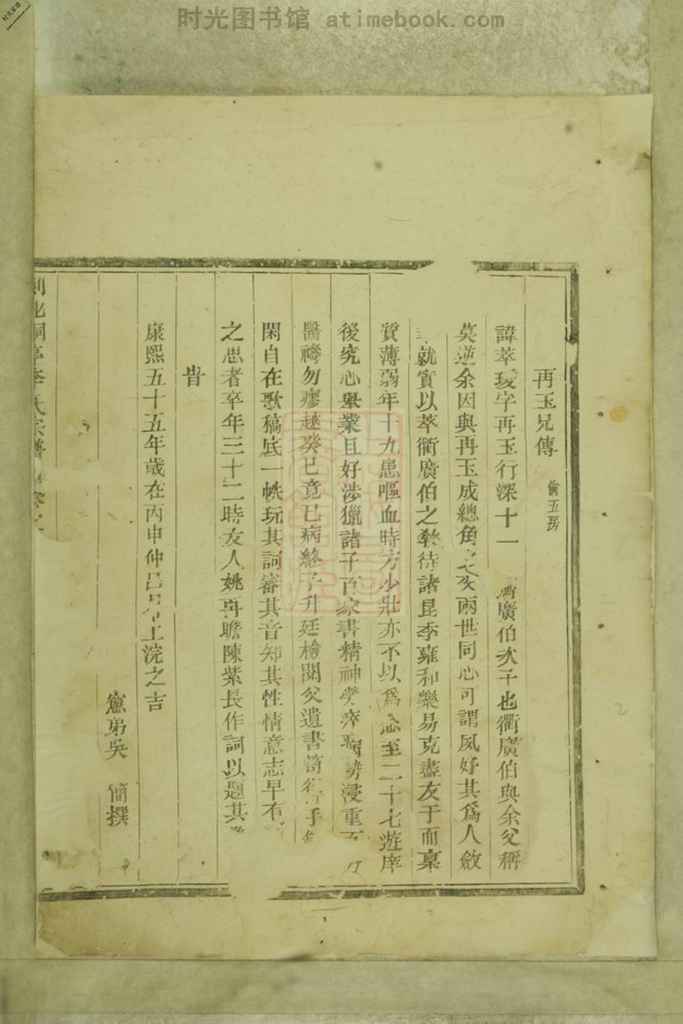 时光图书馆 atimebook.com
再玉兄傳
五房
諱萃琰字再玉行深十一 衢廣伯次子也衢廣伯與余父稱
莫逆余因與再玉成總角之交兩世同心可謂夙好其爲人斂
就實以萃衢廣伯之教待諸昆季雍和樂易克盡友于而稟
質薄弱年十九患嘔血時方少壯亦不以爲念至二十七遊庠
後究心舉業且好涉獵諸子百家書精神勞瘁病勢浸重
醫禱勿瘳越癸巳竟已病終子升廷檢閱父遺書笥
閑自在歌稿底一帙玩其詞審其音知其性情意志早有
之思者卒年三十二時友人姚 瞻陳紫長作詞以題其
旹
康熙五十五年歲在丙申仲呂月上浣之吉
窻弟吳 簡撰